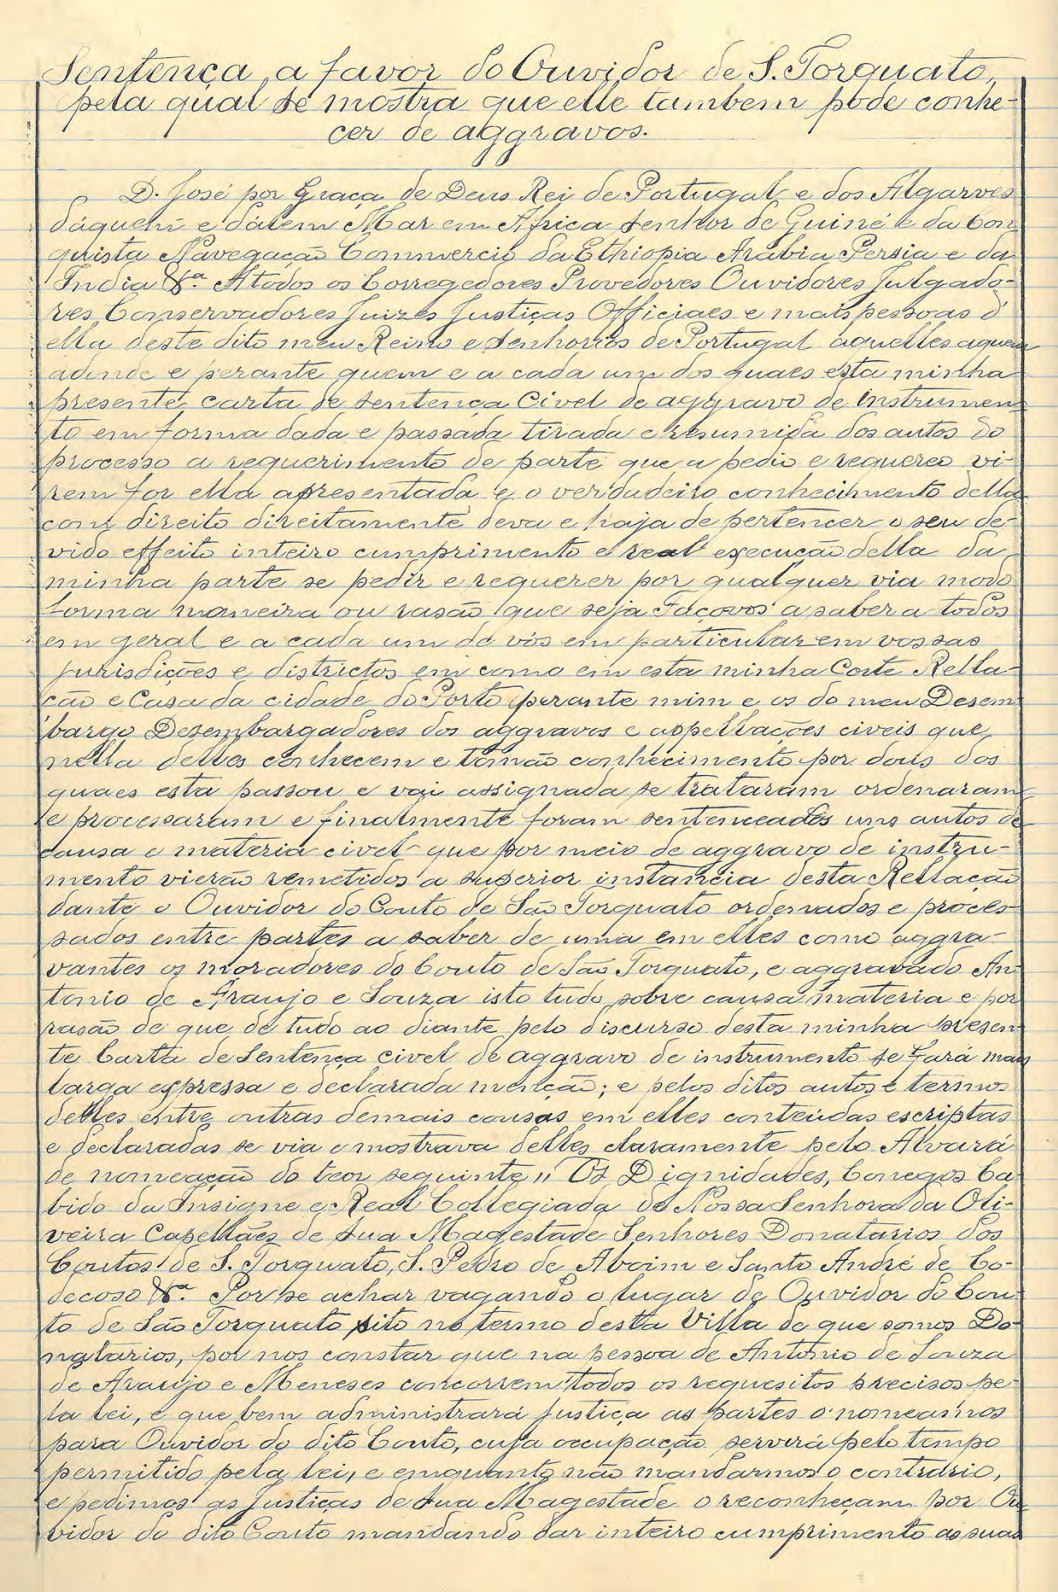 Sentença, a favor do Ouvidor de S. Torquato,
pela qual se mostra que elle tambem pode conhe-
cer de aggravos.
D. José por Graça de Deus Rei de Portugal e dos Algarves
dáquem e dálem Mar em Africa Senhor de Guiné e da Con
quista Navegação Commercio da Ethiopia Arabia Persia e da
India &ª. A todos os Corregedores Provedores Ouvidores Julgado-
res Conservadores Juizes Justiças Officiaes e mais pessoas d'
ella deste dito meu Reino e Senhorios de Portugal aquelles aquem
adonde e perante quem e a cada um dos quaes esta minha
presente carta de sentença Civel de aggravo de instrumen-
to em forma dada e passada tirada e resumida dos autos do
processo a requerimento de parte que a pedio e requereo vi-
rem for ella apresentada e o verdadeiro conhecimento della
com direito direitamente deva e haja de pertencer o seu de-
vido effeito inteiro cumprimento e real execução della da
minha parte se pedir e requerer por qualquer via modo
forma maneira ou rasão que seja Façovos a saber a todos
em geral e a cada um de vós em particular em vossas
Jurisdições e districtos em como em esta minha Corte Rella-
ção e Casa da cidade do Porto perante mim e os do meu Desem
bargo Desembargadores dos aggravos e appellações civeis que
nella delles conhecem e tomão conhecimento por dois dos
quaes esta passou e vai assignada se trataram ordenaram
e processaram e finalmente foram sentenceados uns autos de
causa e materia civel que por meio de aggravo de instru-
mento vierão remetidos a superior instancia desta Rellação
dante o Ouvidor do Couto de São Torquato ordenados e proces-
sados entre partes a saber de uma em elles como aggra-
vantes os moradores do Couto de São Torquato, e aggravado An
tonio de Araujo e Souza isto tudo sobre causa materia e por
rasão de que de tudo ao diante pelo discurso desta minha presen-
te Carta de Sentença civel de aggravo de instrumento se fará mais
larga expressa e declarada menção; e pelos ditos autos e termos
delles entre outras demais cousas em elles conteúdas escriptas
e declaradas se via e mostrava delles claramente pelo Alvará
de nomeação do teor seguinte,, Os Dignidades, Conegos Ca
bido da Insigne e Real Collegiada de Nossa Senhora da Oli-
veira Capellães de Sua Magestade Senhores Donatarios dos
Coutos de S. Torquato, S. Pedro de Aboim e Santo André de Co-
decoso &ª. Por se achar vagando o lugar de Ouvidor do Cou-
to de São Torquato sito no termo desta Villa de que somos Do-
natarios, por nos constar que na pessoa de Antonio de Souza
de Araujo e Meneses concorrem todos os requesitos precisos pe-
la lei, e que bem administrará justiça as partes o nomeamos
para Ouvidor do dito Couto, cuja occupação servirá pelo tempo
permitido pela lei, e emquanto não mandarmos o contrário,
e pedimos as Justiças de Sua Magestade o reconheçam por Ou
vidor do dito Couto mandando dar inteiro cumprimento as suas